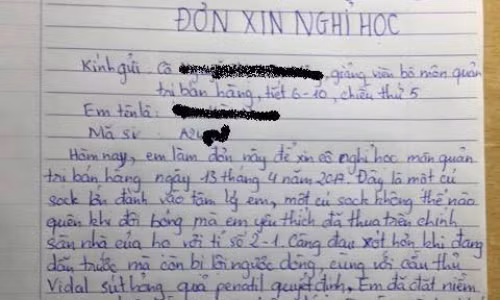 ĐƠN XIN NGHỈ HỌC
Kính gửi: Cô , giảng viên bộ môn quản
trị bán hàng, tiết 6-10, chiều thứ 5
Em tên là:
Mã sv: A24
Hôm nay, em làm đơn này để xin cô nghỉ học môn quản
trị bán hàng ngày 13 tháng 4 năm 2017. Đây là một cú
sock lớn đánh vào tâm lý em, một cú sock không thể nào
quên khi đội bóng mà em yêu thích đã thua trên chính
sân nhà của họ với tỉ số 2-1. Càng đau xót hơn khi đang
dẫn trước mà còn bị lội ngược dòng, cùng với cầu thủ
Vidal sút hỏng quả penatil quyết định. Em đã đặt niềm